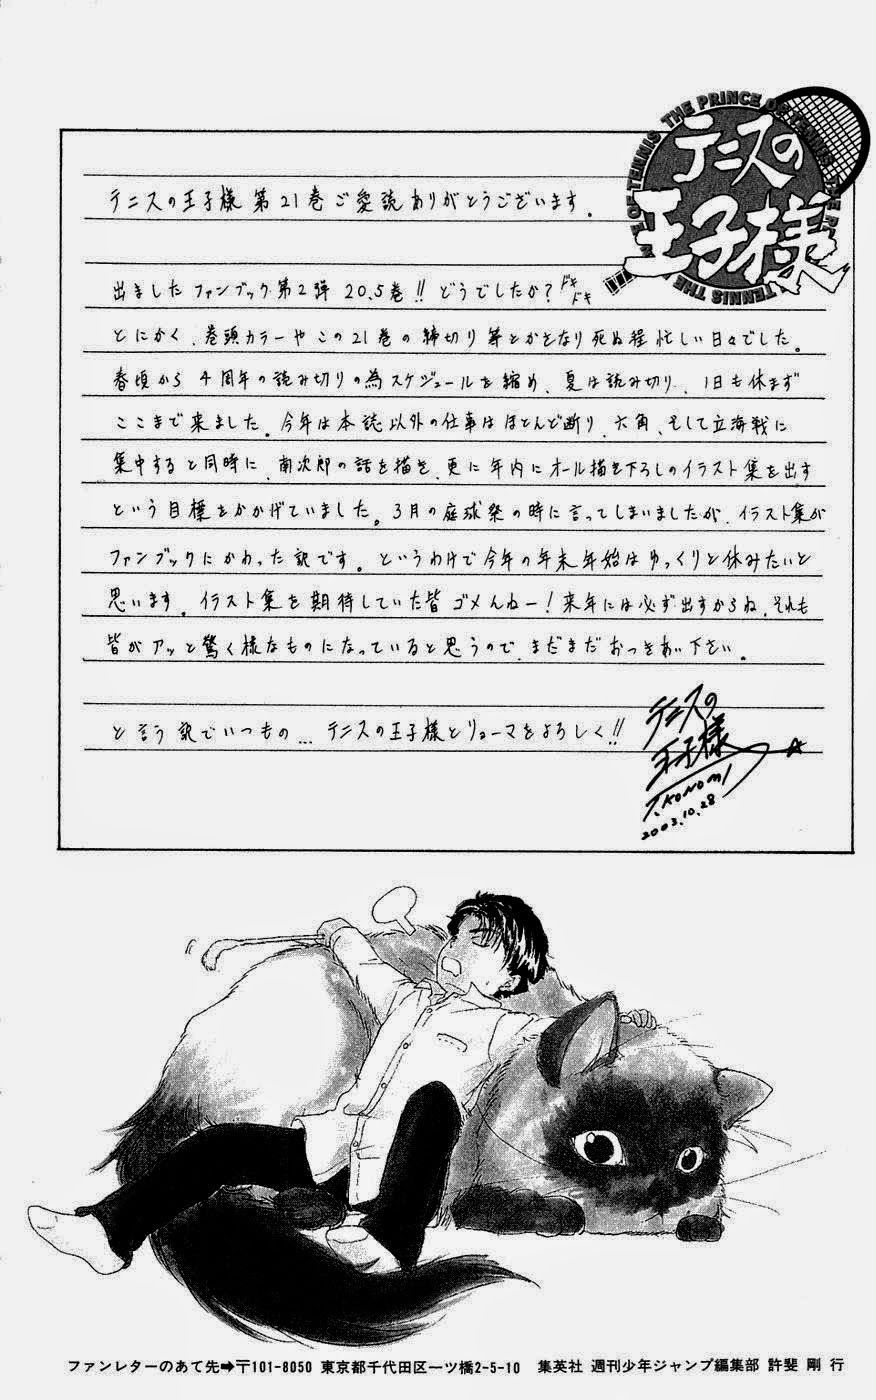 THE PRINCE OF TENNIS
テニスの
王子様
テニスの王子様 第21巻ご愛読ありがとうございます。
出ましたファンブック第2弾 20.5巻!! どうでしたか? ドキドキ
とにかく、巻頭カラーやこの21巻の締切り等とかさなり死ぬ程忙しい日々でした。
春頃から4周年の読み切りの為スケジュールを縮め、夏は読み切り、1日も休まず
ここまで来ました。今年は本誌以外の仕事はほとんど断り、六角、そして立海戦に
集中すると同時に、南次郎の話を描き、更に年内にオール描き下ろしのイラスト集を出す
という目標をかかげていました。3月の庭球祭の時に言ってしまいましたが、イラスト集が
ファンブックにかわった訳です。というわけで今年の年末年始はゆっくりと休みたいと
思います。イラスト集を期待していた皆ゴメんねー!来年には必ず出すからね、それも
皆がアッと驚く様なものになっていると思うので、まだまだおつきあい下さい。
と言う訳でいつもの…テニスの王子様とリョーマをよろしく!!
テニスの
王子様
T.KONOMI
2003.10.28
ファンレターのあて先➡〒101-8050 東京都千代田区一ツ橋2-5-10 集英社 週刊少年ジャンプ編集部 許斐 剛 行